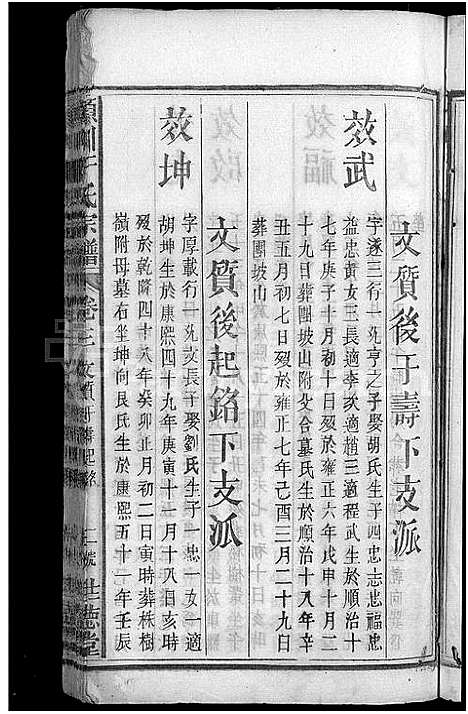 文質後于壽下支派
效武
字遂三行一 亨之子娶胡氏生子四忠志忠福忠
益忠黃女三長適李次適趙三適程武生於順治十
七年庚子十月初十日歿於雍正六年戊申十月二
十九日葬團坡山附父合墓氏生於順治十八年辛
丑五月初七日歿於雍正七年己酉三月二十九日
葬團坡山
文質後起銘下支派
效坤
字厚載行一 文長子娶劉氏生子一忠一女一適
胡坤生於康熙四十九年庚寅十一月十八日亥時
歿於乾隆四十八年癸卯正月初二日寅時葬株樹
嶺附母墓右坐坤向艮氏生於康熙五十一年壬辰
氏宗譜 卷三 文質 起銘